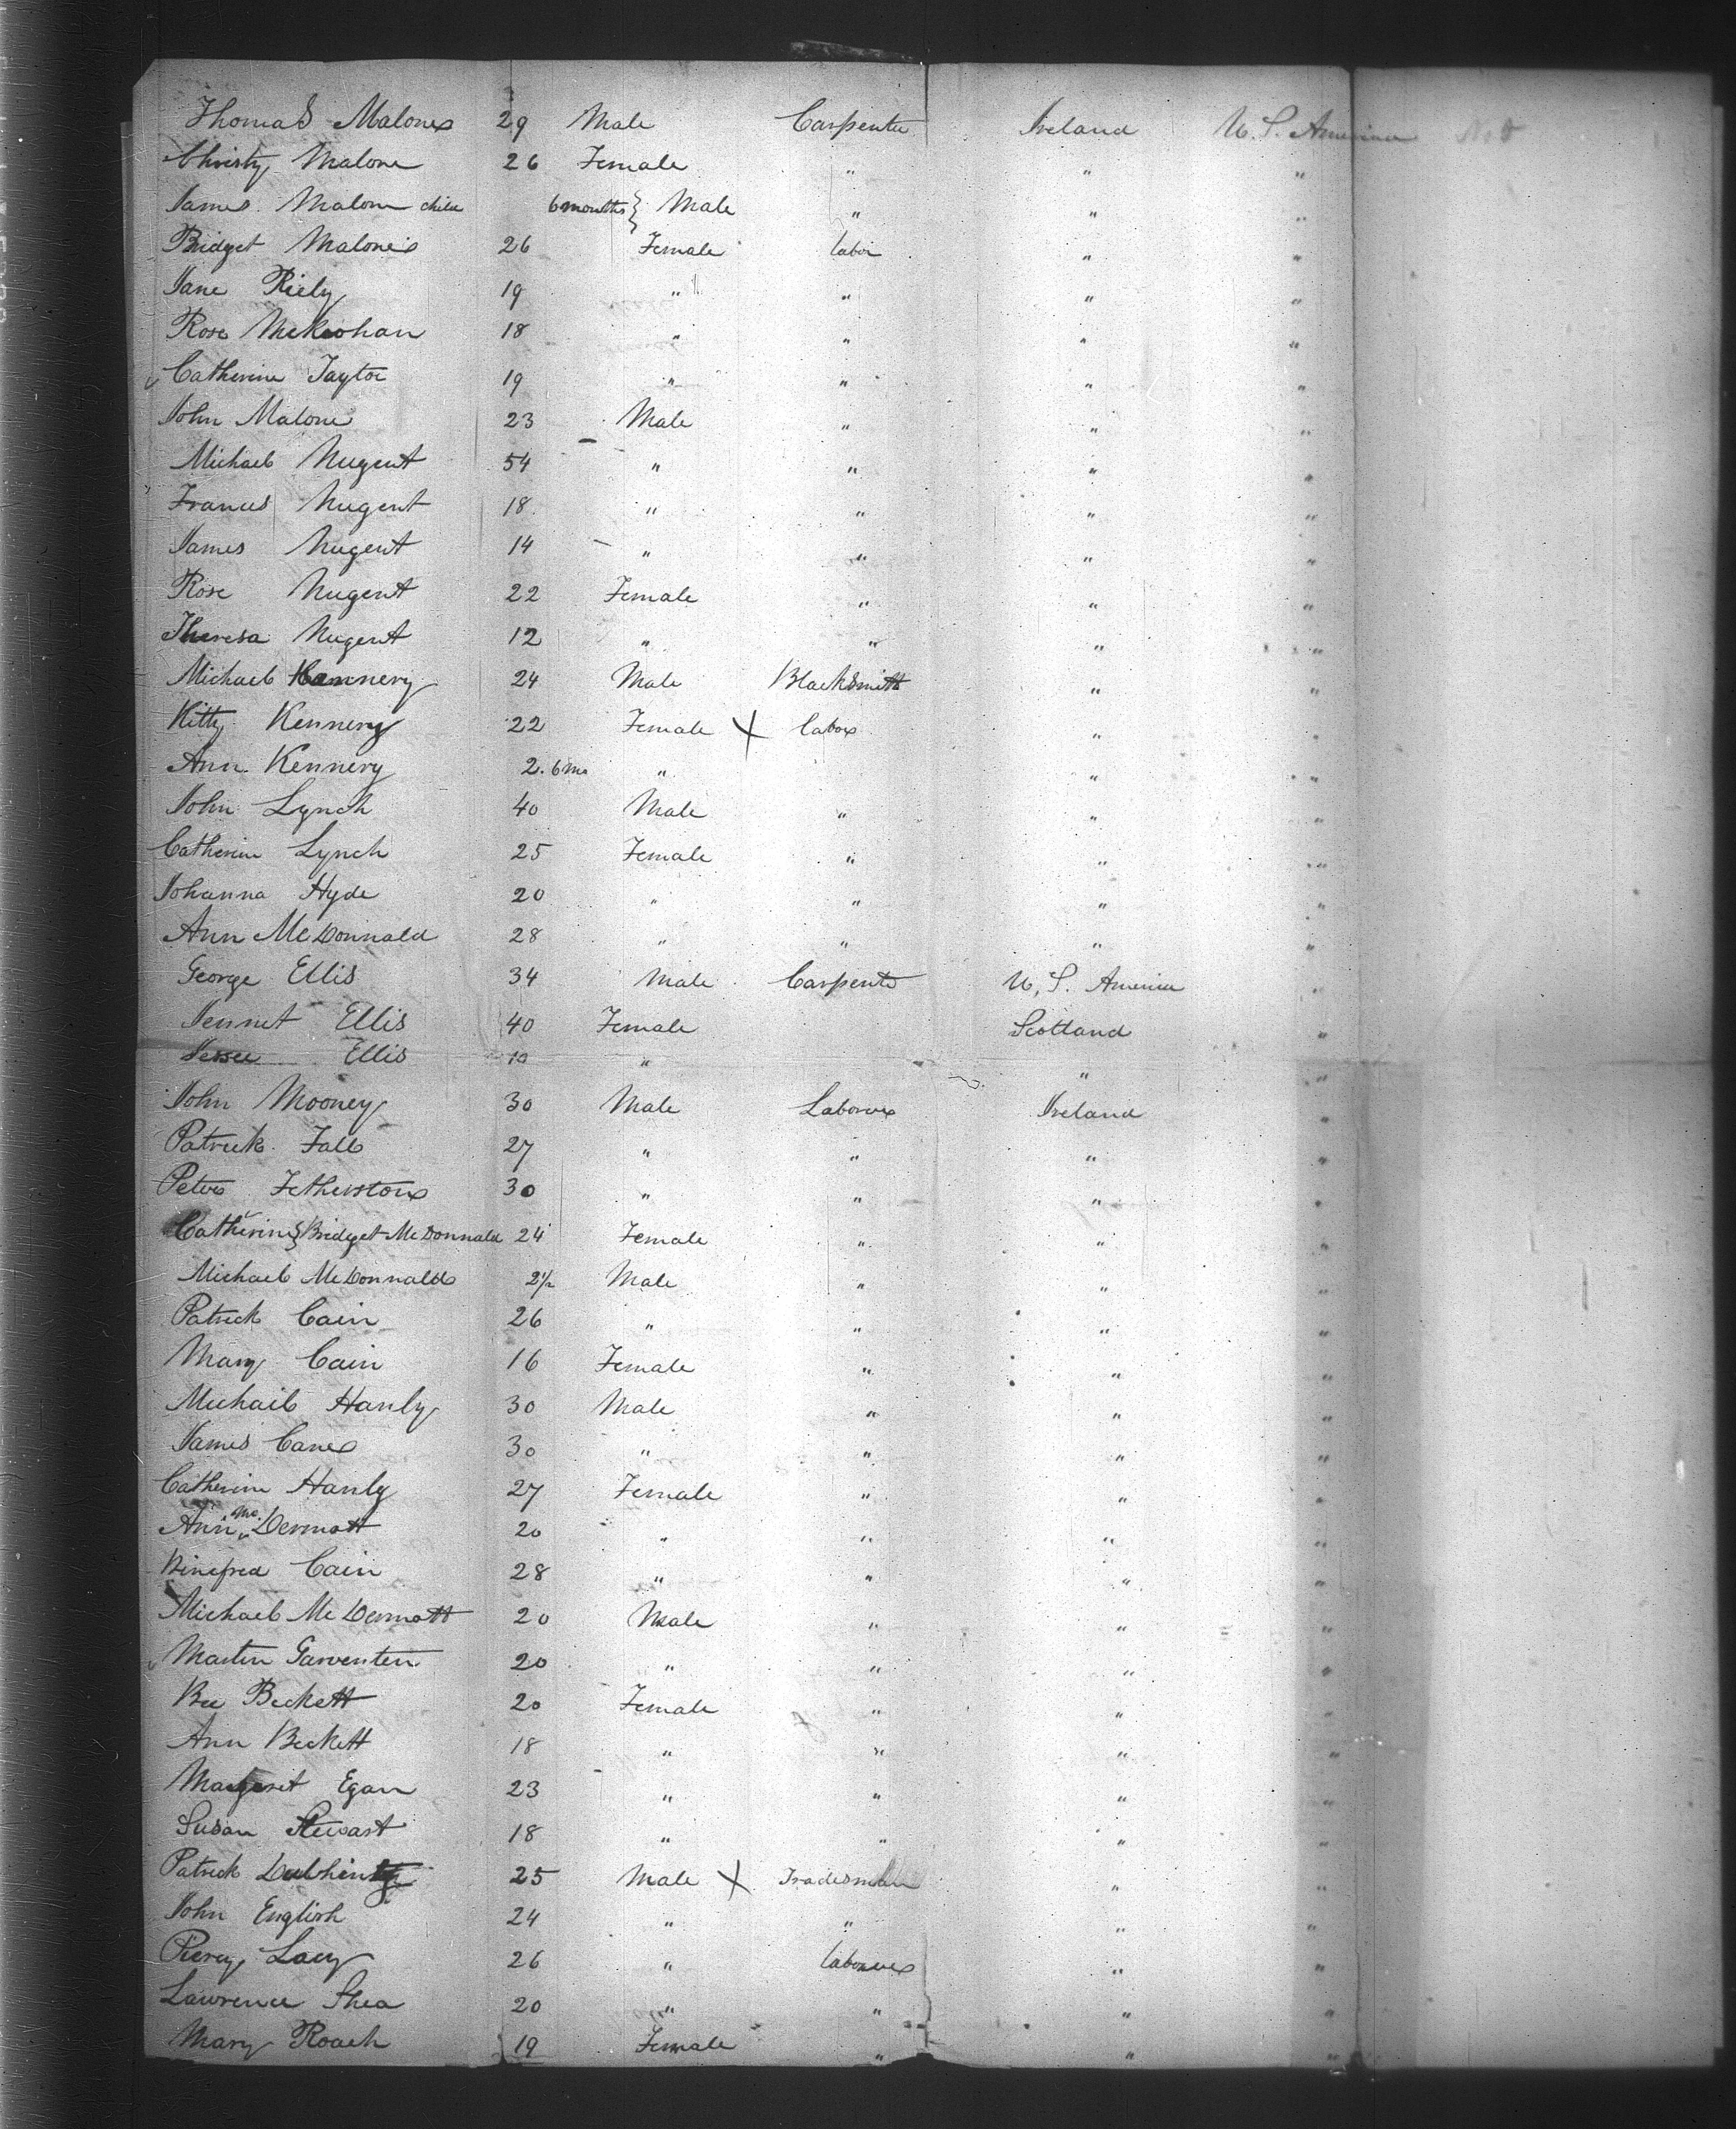 Thomas Malone 29 Male Carpenter Ireland U. S. America
Christy Malone 26 Female " " "
James Malone child 6 months } Male " " "
Bridget Malone 26 Female labor " "
Jane Riely 19 " " " "
Rose McKeohan 18 " " " "
Catherine Taytor 19 " " " "
John Malone 23 Male " " "
Michael Nugent 54 " " " "
Francis Nugent 18 " " " "
James Nugent 14 " " " "
Rose Nugent 22 Female " " "
Theresa Nugent 12 " " " "
Michael Kennery 24 Male Blacksmith " "
Kitty Kennery 22 Female X labor " "
Ann Kennery 2. 6 mo " " "
John Lynch 40 Male " " "
Catherine Lynch 25 Female " " "
Johanna Hyde 20 " " " "
Ann McDonnald 28 " " " "
George Ellis 34 Male Carpenter U. S. America "
Jennet Ellis 40 Female Scotland "
Jessee Ellis 10 " " "
John Mooney 30 Male Laborer Ireland "
Patrick Fall 27 " " " "
Peter Fetherston 30 " " " "
Catherine } Bridget McDonnald 24 Female " " "
Michael McDonnald 2 1/2 Male " " "
Patrick Cain 26 " " " "
Mary Cain 16 Female " " "
Michail Hanly 30 Male " " "
James Cane 30 " " " "
Catherine Hanly 27 Female " " "
Ann Mc Dermott 20 " " " "
Winefred Cain 28 " " " "
Michael McDermott 20 Male " " "
Martin Garventen 20 " " " "
Bee Beckett 20 Female " " "
Ann Beckett 18 " " " "
Margaret Egan 23 " " " "
Susan Stewart 18 " " " "
Patrick 25 Male X Tradesman " "
John English 24 " " " "
Piercy Lacy 26 " laborer " "
Lawrence Shea 20 " " " "
Mary Roach 19 Female " " "